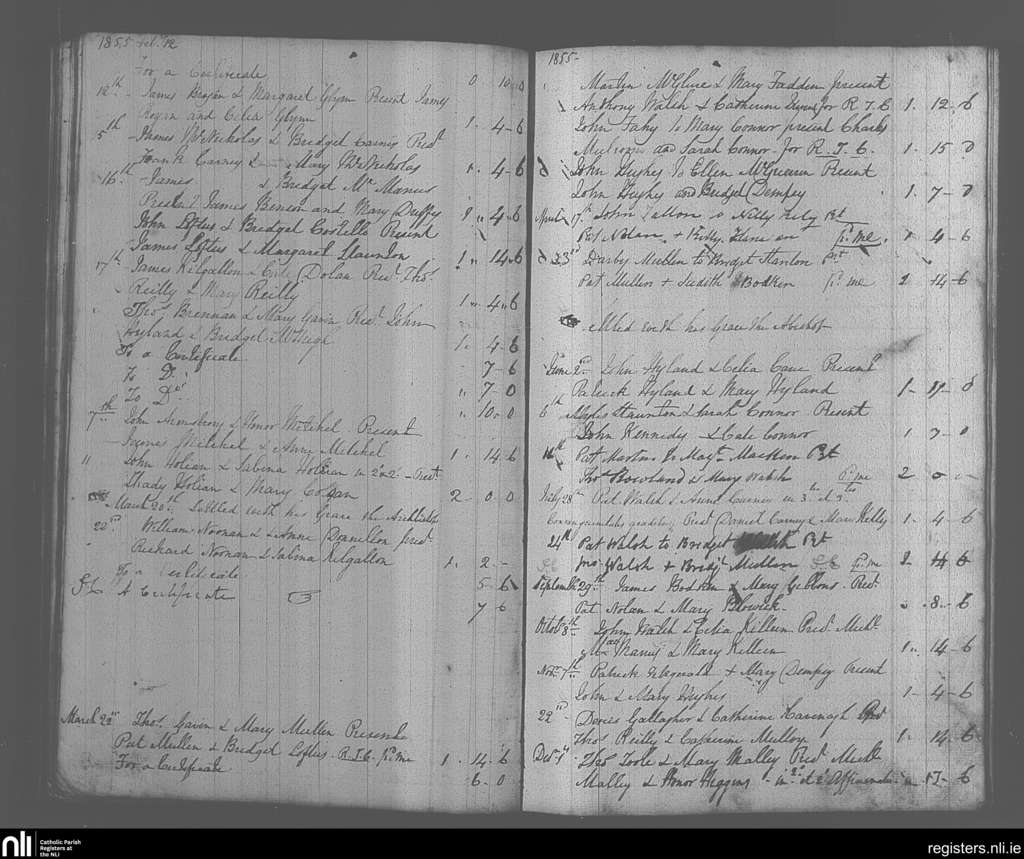 1855 Feb. 12
For a Certificate 0 10 0
12th James Brogan & Margaret Glynn Present James
Brogan and Celia Glynn 1 - 4 - 6
5th Thomas McNicholas & Bridget Carney Pres.d
Frank Carney & Mary McNicholas 1 4 - 6
16th James & Bridget McManus
Present James Benson and Mary Duffy 1 " 4 - 6
John Loftus & Bridget Costello Present
James Loftus & Margaret Staunton 1 " 14 " 6
17th James Kilgallon & Dolan Pres.t Thos.
Reilly & Mary Reilly 1 " 4 - 6
Thos. Brennan & Mary Gavin Pres.t John
Hyland & Bridget McHugh 1 - 4 - 6
To a Certificate - 7 - 6
To Do. " 7 - 0
To Do. " 10 - 0
7th John Armstrong & Honor Mitchel Present
James Mitchel & Anne Mitchel 1 - 14 - 6
11 John Holian & Sabina Holian in 2o 2o - Prest
Thady Holian & Mary 2 - 0 0
March 20th Settled with his Grace the Archbishop
22nd William Noonan & Anne Donnellon pres.t
Richard Noonan & Sabina Kilgallon 1 - 2 -
To a Certificate 5 - 6
A Certificate 7 6
March 22nd Thos. Gavin & Mary Mullen Present
Pat Mullen & Bridget Loftus - R.T.C. pr. me 1 - 14 - 6
For a Certificate 6 - 0
1855 -
Martin McGlue & Mary Fadden present
Anthony Walsh & Catherine for R T C 1 - 12 - 6
John Fahy to Mary Connor present Charles
and Sarah Connor for R. T. C. 1 - 15 0
John Hughes to Ellen Present
John Hughes and Bridget Dempsy 1 - 7 - 0
April 17th John & Nelly Pt
Pat Nolan + Kitty pr. me 1 4 - 6
23rd Darby Mullen to Bridget Stanton Prt
Pat Mullen + Judith Bodkin pr. me 2 - 14 - 6
ettled with his Grace the Abishop
June 2nd John Hyland & Celia Cane Present
Patrick Hyland & Mary Hyland 1 - 11 - 0
6th Myles Staunton & Sarah Connor Present
John Kennedy & Cate Connor 1 - 7 - 0
Pat Martin to Margt. Mackin Pt
Thos Rowland & Mary Walsh pr. me 2 - 0 -
July 28th Pat Walsh & Anne Carney in 3o et 3o
Consanguinitatis gradibus Pres.t Daniel Carney & Mary Kelly 1 - 4 - 6
24th Pat Walsh to Bridget Pt
Jno. Walsh + Bridgt Mullen pr. me 2 - 4 - 6
September 29th James Bodkin & Mary Gibbons Pres.t
Pat Nolan & Mary Blowick - 8 - 6
Octobr 8th John Walsh & Celia Killeen Pres.t Michl.
& Mary Killeen 1 " 14 - 6
Nov. 7th Patrick Fitzgerald + Mary Dempsy Present
John & Mary Hughes 1 - 4 - 6
22nd Denis Gallagher & Catherine Kavenagh Pres.t
Thos Reilly & Catherine Mulloy 1 - 14 - 6
Decr. 4 Thos Toole & Mary Malley Pres.t Michl.
Malley & Honor Higgins - in 2o et 2o Affinitatis 6
nli
Catholic Parish
Registers at
the NLI
registers.nli.ie